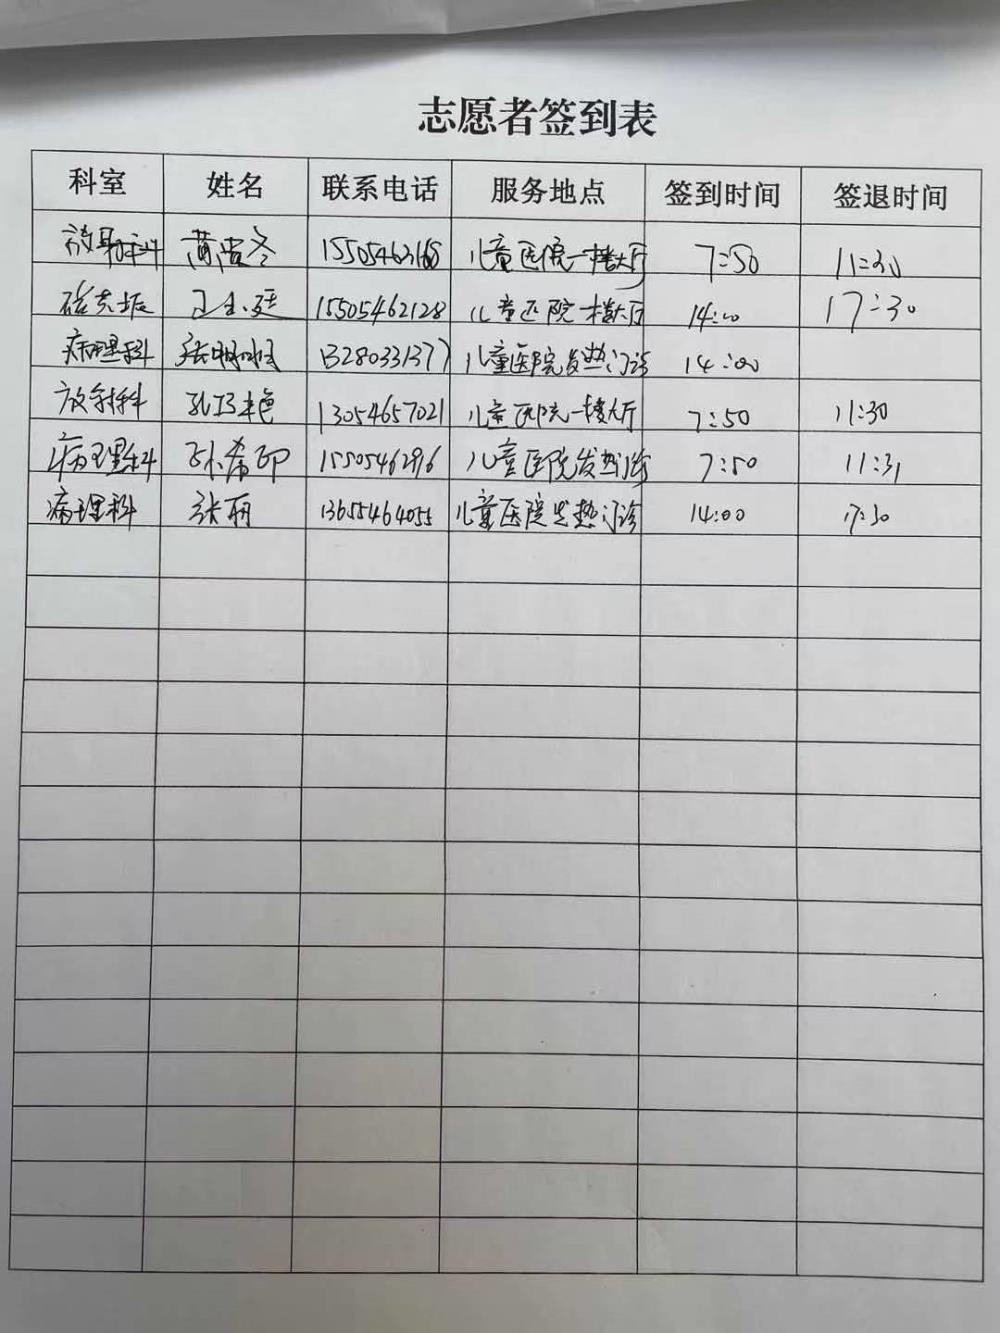 志愿者签到表
科室 姓名 联系电话 服务地点 签到时间 签退时间
放射科 儿童医院一楼大厅 7:50 11:30
15505462128 儿童医院一楼大厅 14:00 17:30
病理科 13280331377 儿童医院发热门诊 14:00
放射科 13054657021 儿童医院一楼大厅 7:50 11:30
病理科 孙希印 1550546296 儿童医院发热诊 7:50 11:31
病理科 张丽 13655464055 儿童医院发热门诊 14:00 17:30